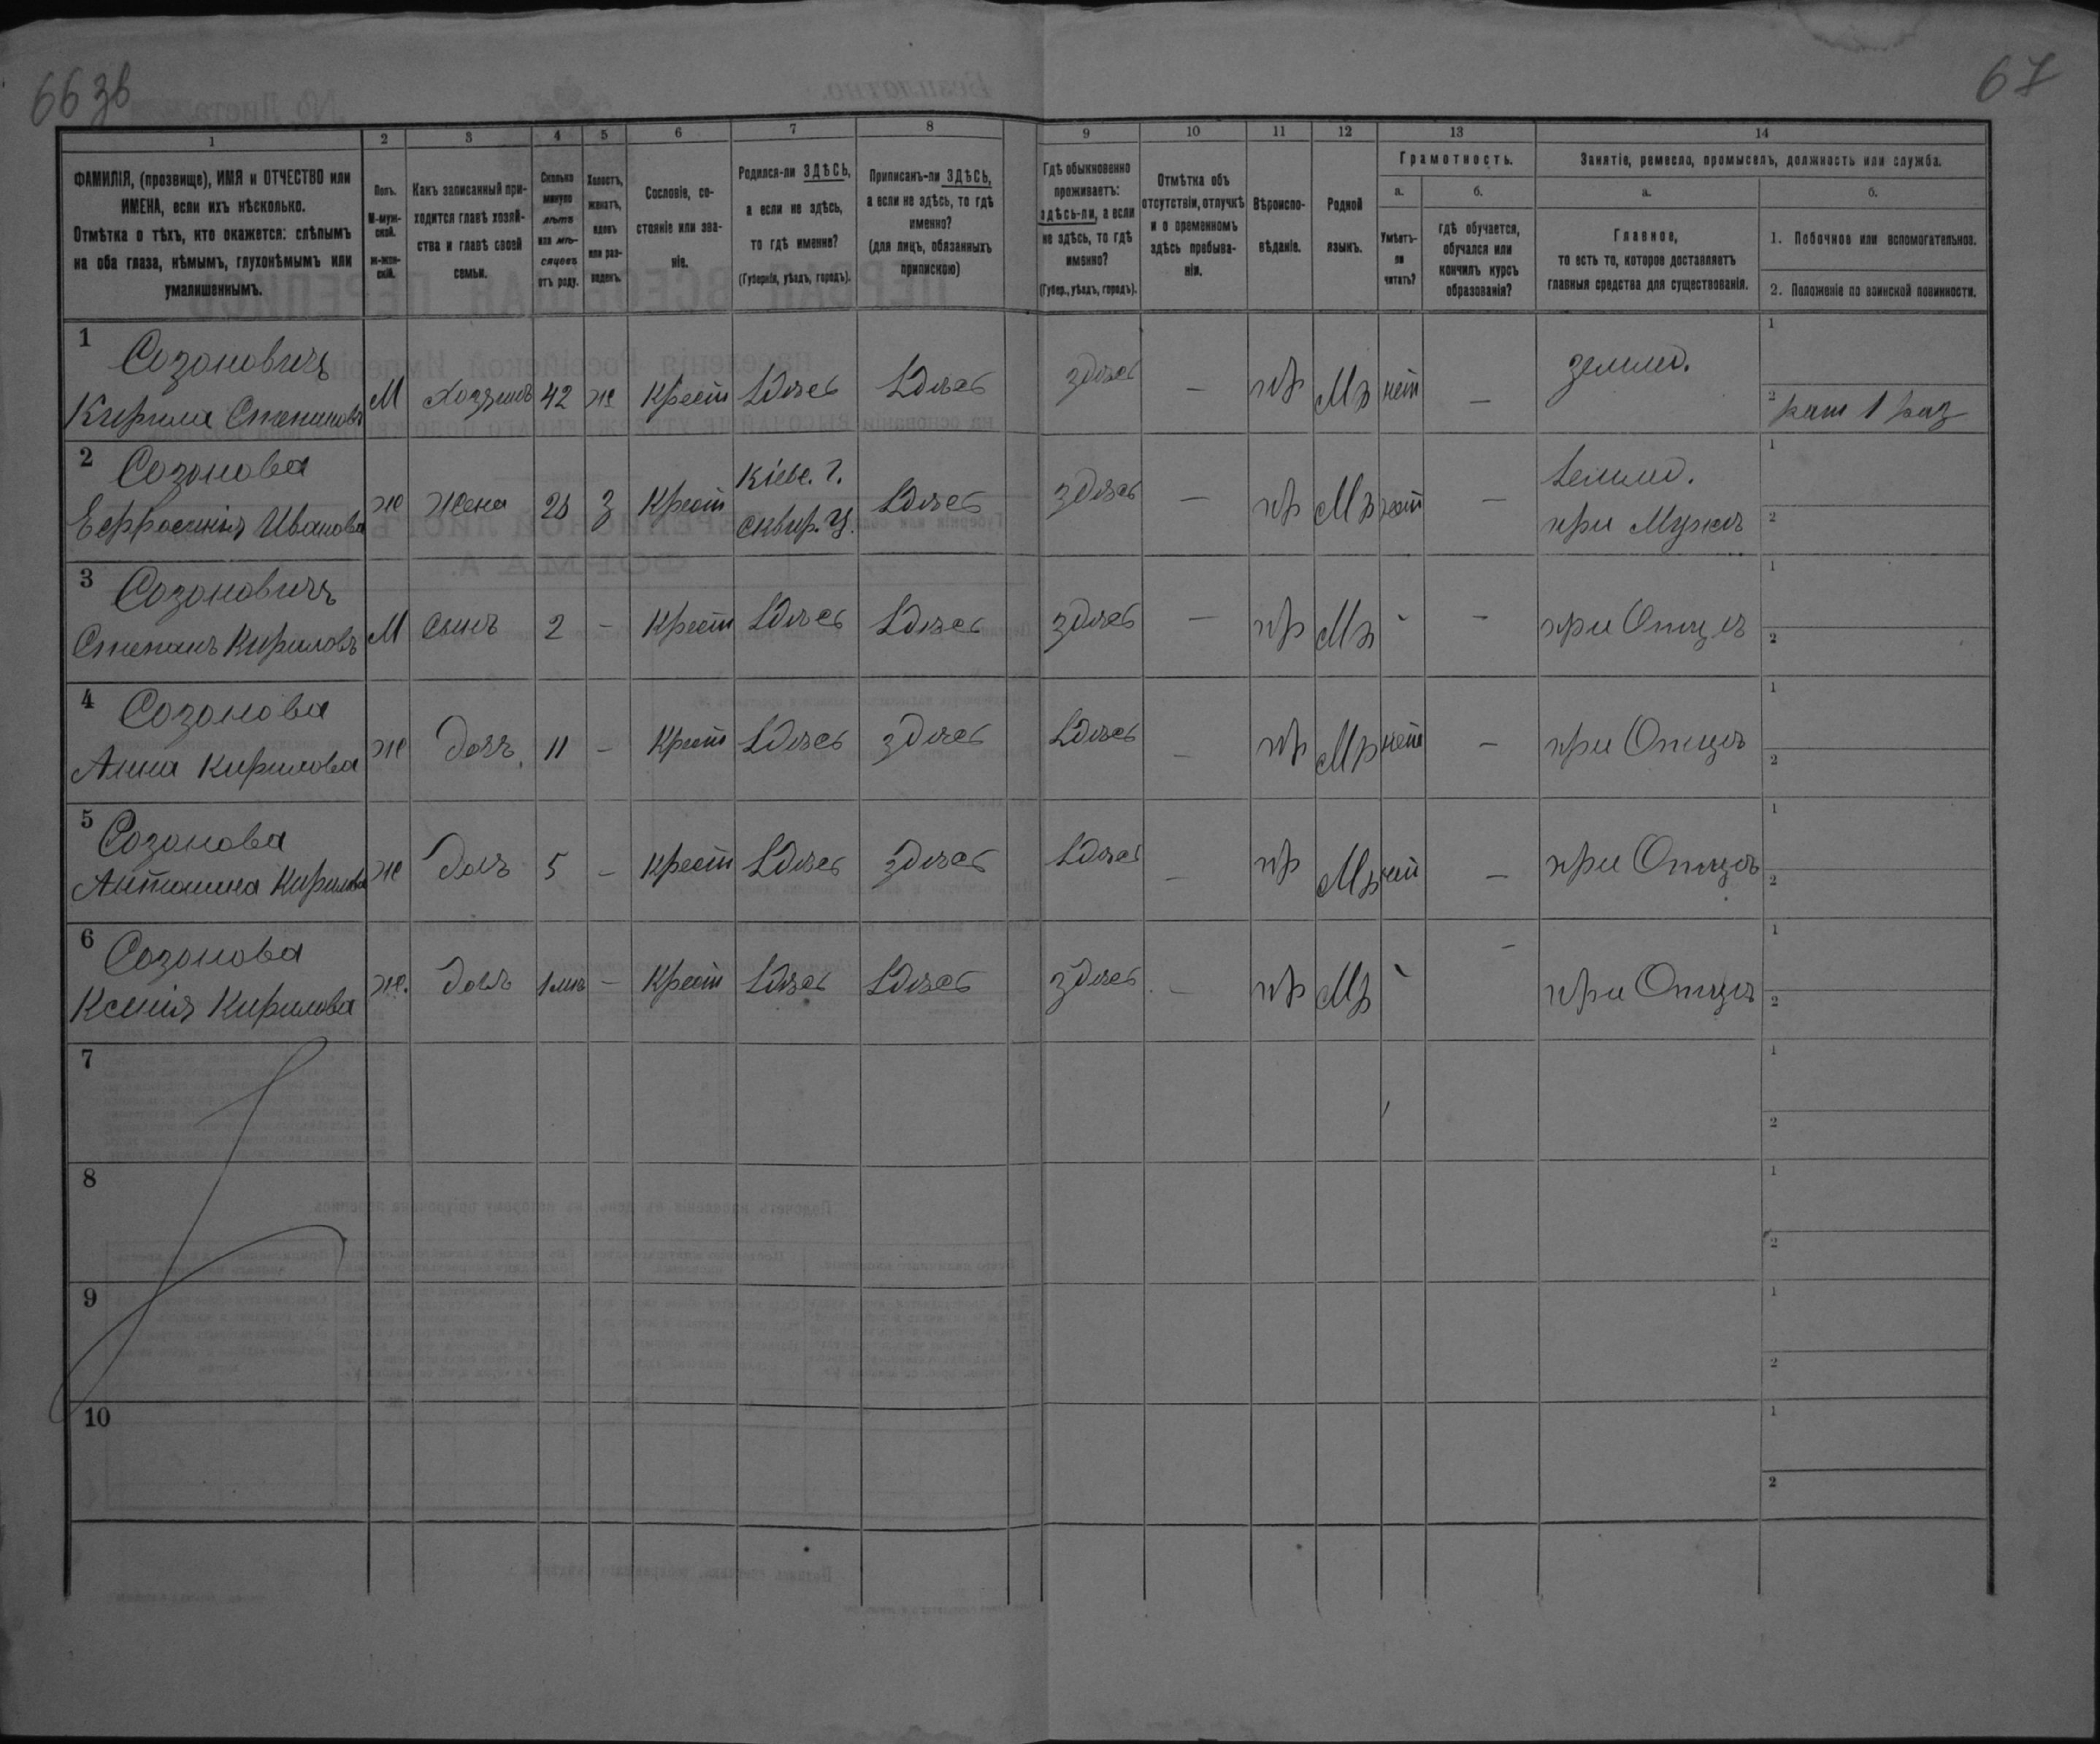 66 зв
67
1
2
3
4
5
6
7
8
9
10
11
12
13
14
ФАМИЛІЯ, (прозвище), ИМЯ и ОТЧЕСТВО или
ИМЕНА, если ихъ нѣсколько.
Отмѣтка о тѣхъ, кто окажется: слѣпымъ
на оба глаза, нѣмымъ, глухонѣмымъ или
умалишеннымъ.
Полъ.
М-муж-
ской.
ж-жен-
скій.
Какъ записанный при-
ходится главѣ хозяй-
ства и главѣ своей
семьи.
Сколько
минуло
лѣтъ
или мѣ-
сяцевъ
отъ роду.
Холостъ,
женатъ,
вдовъ
или раз-
веденъ.
Сословіе, со-
стояніе или зва-
ніе.
Родился-ли ЗДѢСЬ,
а если не здѣсь,
то гдѣ именно?
(Губернія, уѣздъ, городъ).
Приписанъ-ли ЗДѢСЬ,
а если не здѣсь, то гдѣ
именно?
(для лицъ, обязанныхъ
припискою)
Гдѣ обыкновенно
проживаетъ:
здѣсь-ли, а если
не здѣсь, то гдѣ
именно?
(Губер., уѣздъ, городъ).
Отмѣтка объ
отсутствіи, отлучкѣ
и о временномъ
здѣсь пребыва-
ніи.
Вѣроиспо-
вѣданіе.
Родной
языкъ.
Грамотность.
а.
б.
Умѣетъ-
ли
читать?
гдѣ обучается,
обучался или
кончилъ курсъ
образованія?
Занятіе, ремесло, промыселъ, должность или служба.
а.
б.
Главное,
то есть то, которое доставляетъ
главныя средства для существованія.
1. Побочное или вспомогательное.
2. Положеніе по воинской повинности.
1 Созоновичъ
Кирила Степановъ М Хозяинъ 42 же Крест Здѣсь Здѣсь здѣсь — пр Мр нѣт — землед. 1
2 рат 1 раз
2 Созонова
Ефросинія Иванова же жена 28 з Крест Кіевс. г. Сквир. у. Здѣсь здѣсь — пр Мр нѣт — землед. 1
при Мужѣ 2
3 Созоновичъ
Степанъ Кириловъ М сынъ 2 - Крест Здѣсь Здѣсь здѣсь — пр Мр - - при Отцѣ 1
2
4 Созонова
Анна Кирилова же дочь 11 - Крест Здѣсь здѣсь Здѣсь — пр Мр нѣт — при Отцѣ 1
2
5 Созонова
Антонина Кирилова же дочь 5 - Крест Здѣсь здѣсь Здѣсь — пр Мр нѣт — при Отцѣ 1
2
6 Созонова
Ксенія Кирилова же. дочь 1 мѣ - Крест Здѣсь Здѣсь здѣсь — пр Мр - - при Отцѣ 1
2
7 1
2
8 1
2
9 1
2
10 1
2